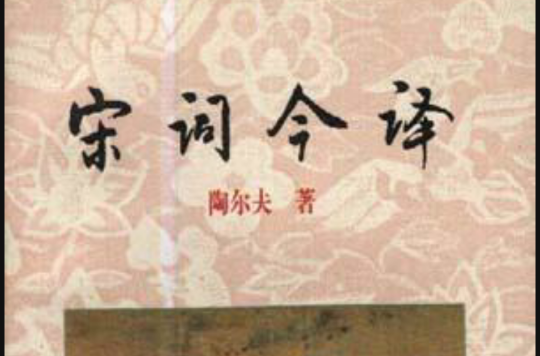 宋词今译
陶尔夫 著